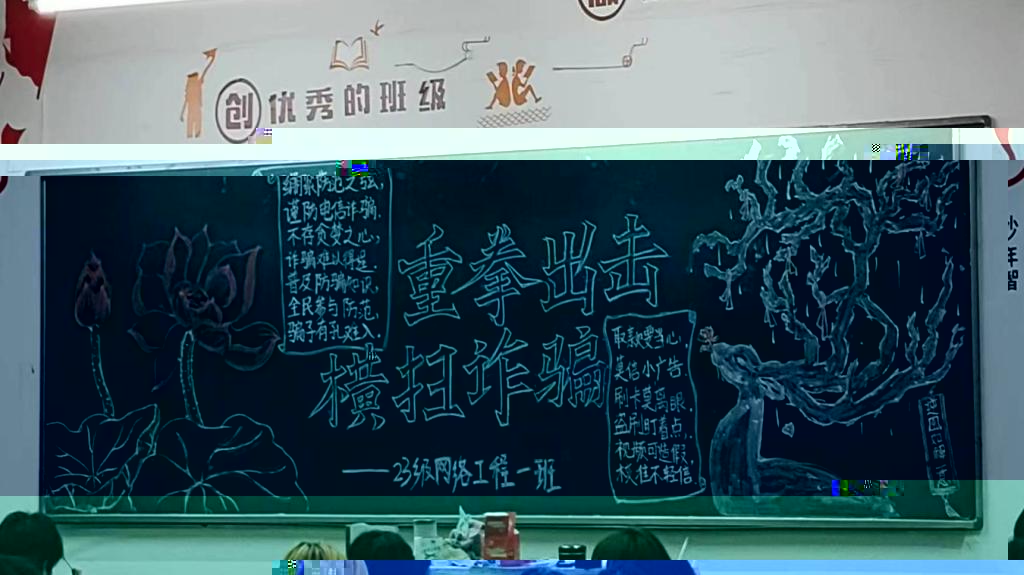 创优秀的班级
绷紧防范之弦,
谨防电信诈骗.
不存贪婪之心,
诈骗难以得逞.
普及防骗知识,
全民参与防范,
骗子有孔难入
重拳出击
横扫诈骗
取款要当心,
莫信小广告
刷卡莫离眼,
盗刷盯着点,
视频可造假,
核准不轻信
——23级网络工程一班
少年智